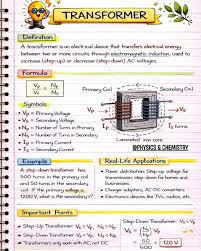 TRANSFORMER
Definition
A transformer is an electrical device that transfers electrical energy
between two or more circuits through electromagnetic induction, used to
increase (step-up) or decrease (step-down) AC voltages.
Formula
Vp / Vs = Np / Ns
Symbols
Vp = Primary Voltage
Vs = Secondary Voltage
Np = Number of
Ip = Primary Current
Is = Secondary Current
Primary Coil
Secondary Coil
Laminated iron core
@PHYSICS & CHEMISTRY
Example
A step-down transformer has
500 turns in the primary coil
and 50 turns in the secondary
coil. If the primary voltage is
1200V, what is the secondary
Real-Life Applications
Power distributes: Step-up voltage for
transmission, step-down for homes and
businesses.
Charger adaptors, AC/DC converters
Electronics devices like TVs, radios, etc.
Important Points
Step-Up Transformer:
Step-Down Transformer:
Transformers only work with AC, not DC
Step-Down Transformer:
120 V